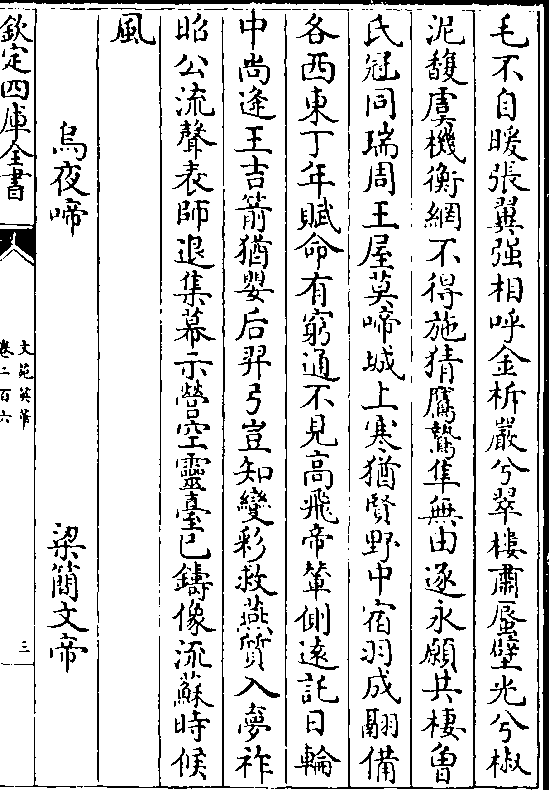 毛不自暖張翼强相呼金柝嚴兮翠樓肅蜃壁光兮椒
泥馥虞機衡網不得施猜鷹鷙隼無由逐永願共棲曾
氏冠同瑞周王屋莫啼城上寒猶賢野中宿羽成翮備
各西東丁年賦命有窮通不見高飛帝輦側遠託日輪
中尚逢王吉箭猶嬰后羿弓豈知變彩救燕質入夢祚
昭公流聲表師退集幕示營空靈臺已鑄像流蘇時候
風
烏夜啼　梁簡文帝
欽定四庫全書
文苑英華
卷二百六
三